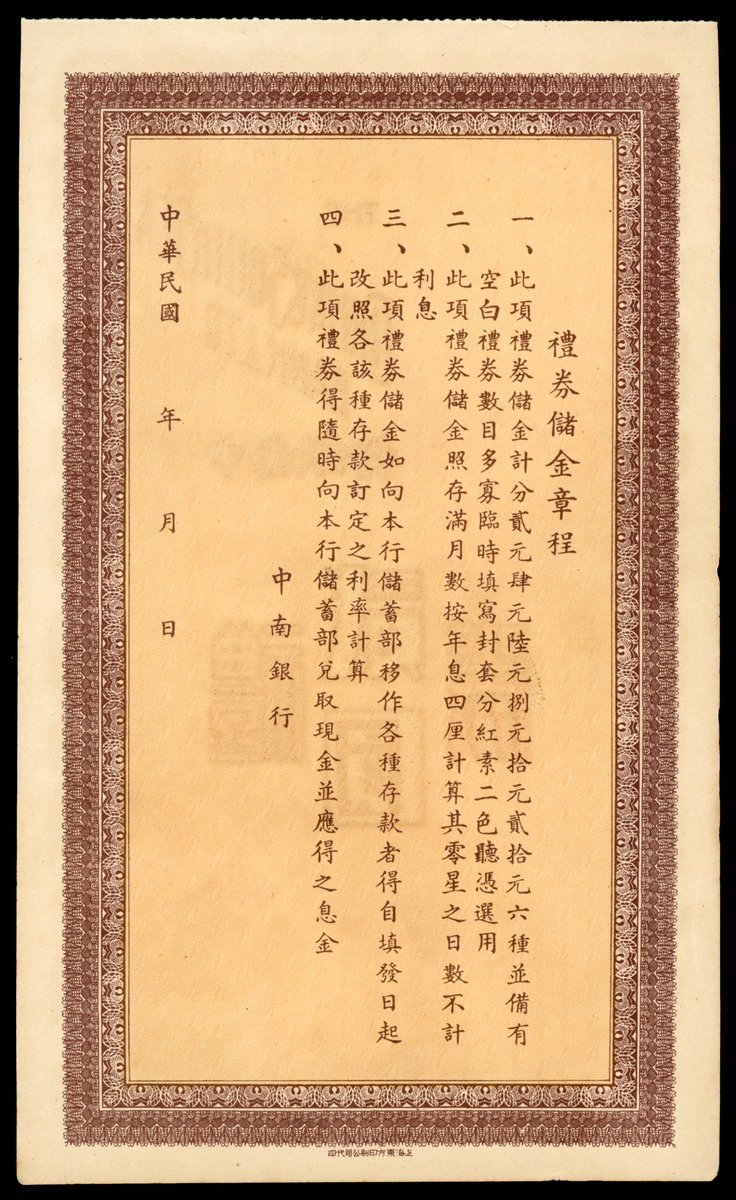 禮券儲金章程
一、此項禮券儲金計分貳元肆元陸元捌元拾元貳拾元六種並備有
空白禮券數目多寡臨時填寫封套分紅素二色聽憑選用
二、此項禮券儲金照存滿月數按年息四厘計算其零星之日數不計
利息
三、此項禮券儲金如向本行儲蓄部移作各種存款者得自填發日起
改照各該種存款訂定之利率計算
四、此項禮券得隨時向本行儲蓄部兌取現金並應得之息金
中南銀行
中華民國 年 月 日
印代司公刷印方東海上